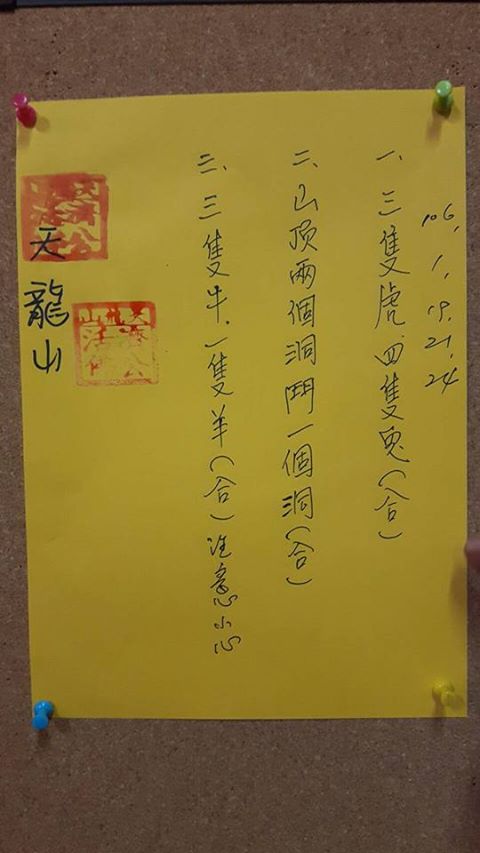 106.1.19.21.24
一、三隻虎、四隻兔(合)
二、山顶兩個洞鬥一個洞(合)
三、三隻牛、一隻羊(合)注意小心
天龍山